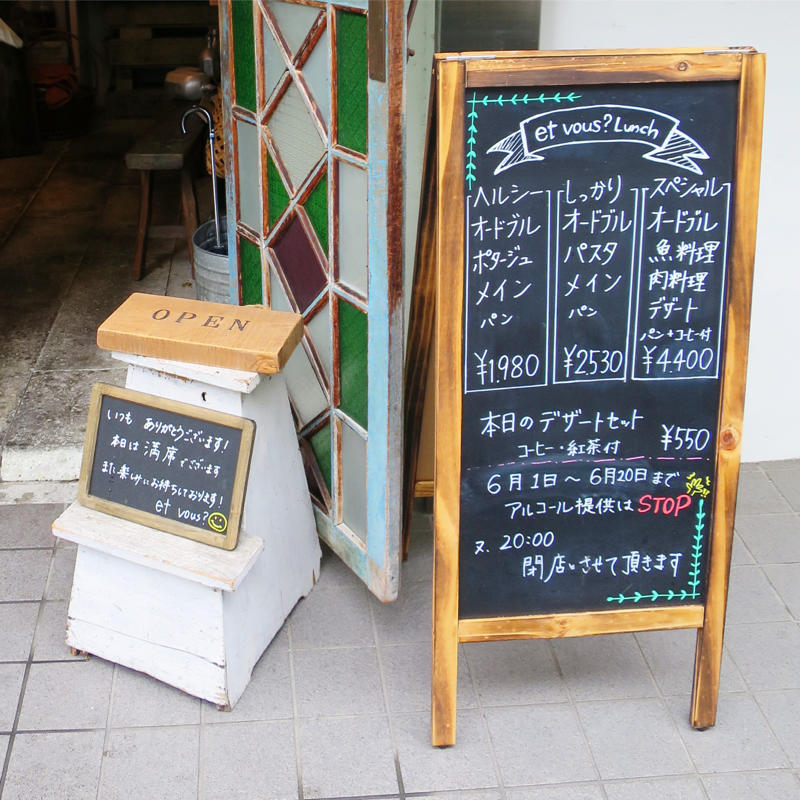 OPEN
いつも ありがとうございます!
本日は 満席でございます
また楽しみにお待ちしております!
et vous?
et vous? Lunch
ヘルシー
オードブル
ポタージュ
メイン
パン
¥1.980
しっかり
オードブル
パスタ
メイン
パン
¥2530
スペシャル
オードブル
魚料理
肉料理
デザート
パン+コーヒー付
¥4.400
本日のデザートセット
コーヒー・紅茶付
¥550
6月1日~6月20日まで
アルコール提供はSTOP
又、20:00
閉店させて頂きます